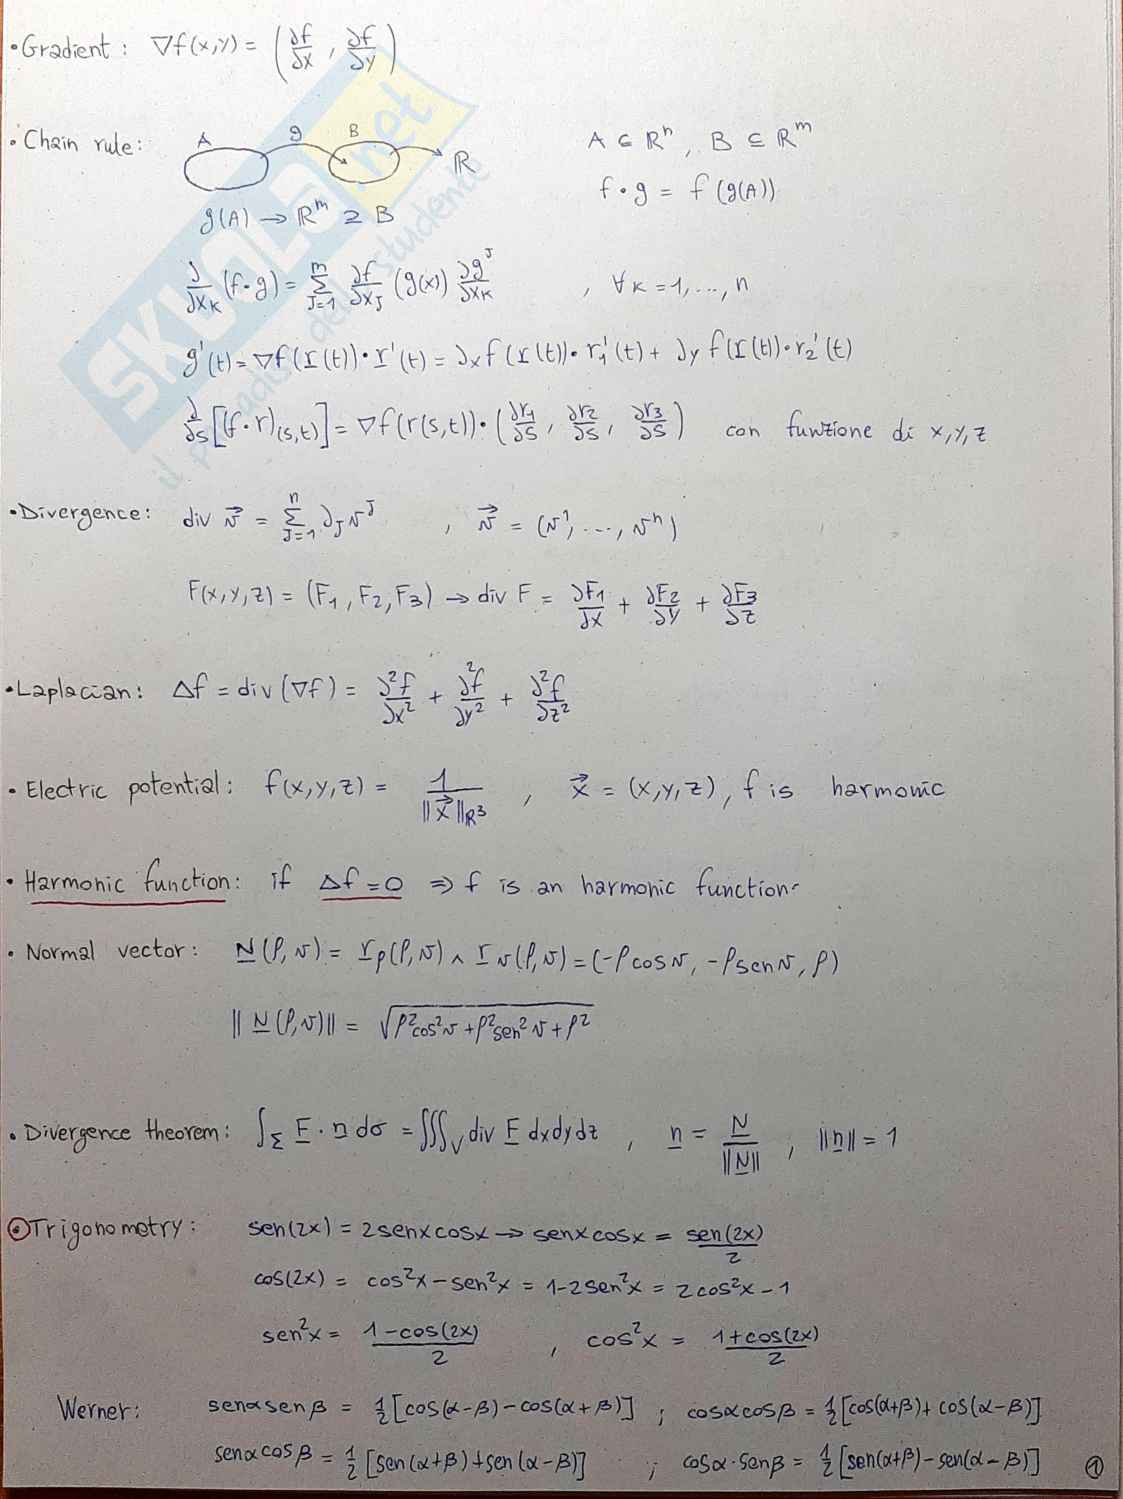 • Gradient: ∇f(x,y) = (∂f/∂x , ∂f/∂y)
• Chain rule: A g B ℝ A ⊆ ℝⁿ, B ⊆ ℝᵐ
g(A) → ℝᵐ ⊇ B f • g = f(g(A))
∂/∂x_K (f • g) = Σ_{J=1}^{m} ∂f/∂x_J (g(x)) ∂g^J/∂x_K , ∀ K = 1, ..., n
g'(t) = ∇f(r(t)) • r'(t) = ∂x f(r(t)) • r₁'(t) + ∂y f(r(t)) • r₂'(t)
∂/∂s [(f • r)(s,t)] = ∇f(r(s,t)) • (∂r₁/∂s , ∂r₂/∂s , ∂r₃/∂s) con funzione di x,y,z
• Divergence: div v⃗ = Σ_{J=1}^{n} ∂_J v^J , v⃗ = (v¹, ..., vⁿ)
F(x,y,z) = (F₁, F₂, F₃) → div F = ∂F₁/∂x + ∂F₂/∂y + ∂F₃/∂z
• Laplacian: Δf = div(∇f) = ∂²f/∂x² + ∂²f/∂y² + ∂²f/∂z²
• Electric potential: f(x,y,z) = 1/‖x⃗‖_ℝ³ , x⃗ = (x,y,z), f is harmonic
• Harmonic function: if Δf = 0 ⇒ f is an harmonic function.
• Normal vector: N(ρ,v) = r_ρ(ρ,v) ∧ r_v(ρ,v) = (-ρcosv, -ρsenv, ρ)
‖N(ρ,v)‖ = √(ρ²cos²v + ρ²sen²v + ρ²)
• Divergence theorem: ∫_Σ F • n dσ = ∭_V div F dxdydz , n = N/‖N‖ , ‖n‖ = 1
• Trigonometry: sen(2x) = 2senxcosx → senxcosx = sen(2x)/2
cos(2x) = cos²x - sen²x = 1-2sen²x = 2cos²x - 1
sen²x = (1-cos(2x))/2 , cos²x = (1+cos(2x))/2
Werner: senαsenβ = 1/2 [cos(α-β) - cos(α+β)] ; cosαcosβ = 1/2 [cos(α+β) + cos(α-β)]
senαcosβ = 1/2 [sen(α+β) + sen(α-β)] ; cosα·senβ = 1/2 [sen(α+β) - sen(α-β)]
1
SKUOLA.net